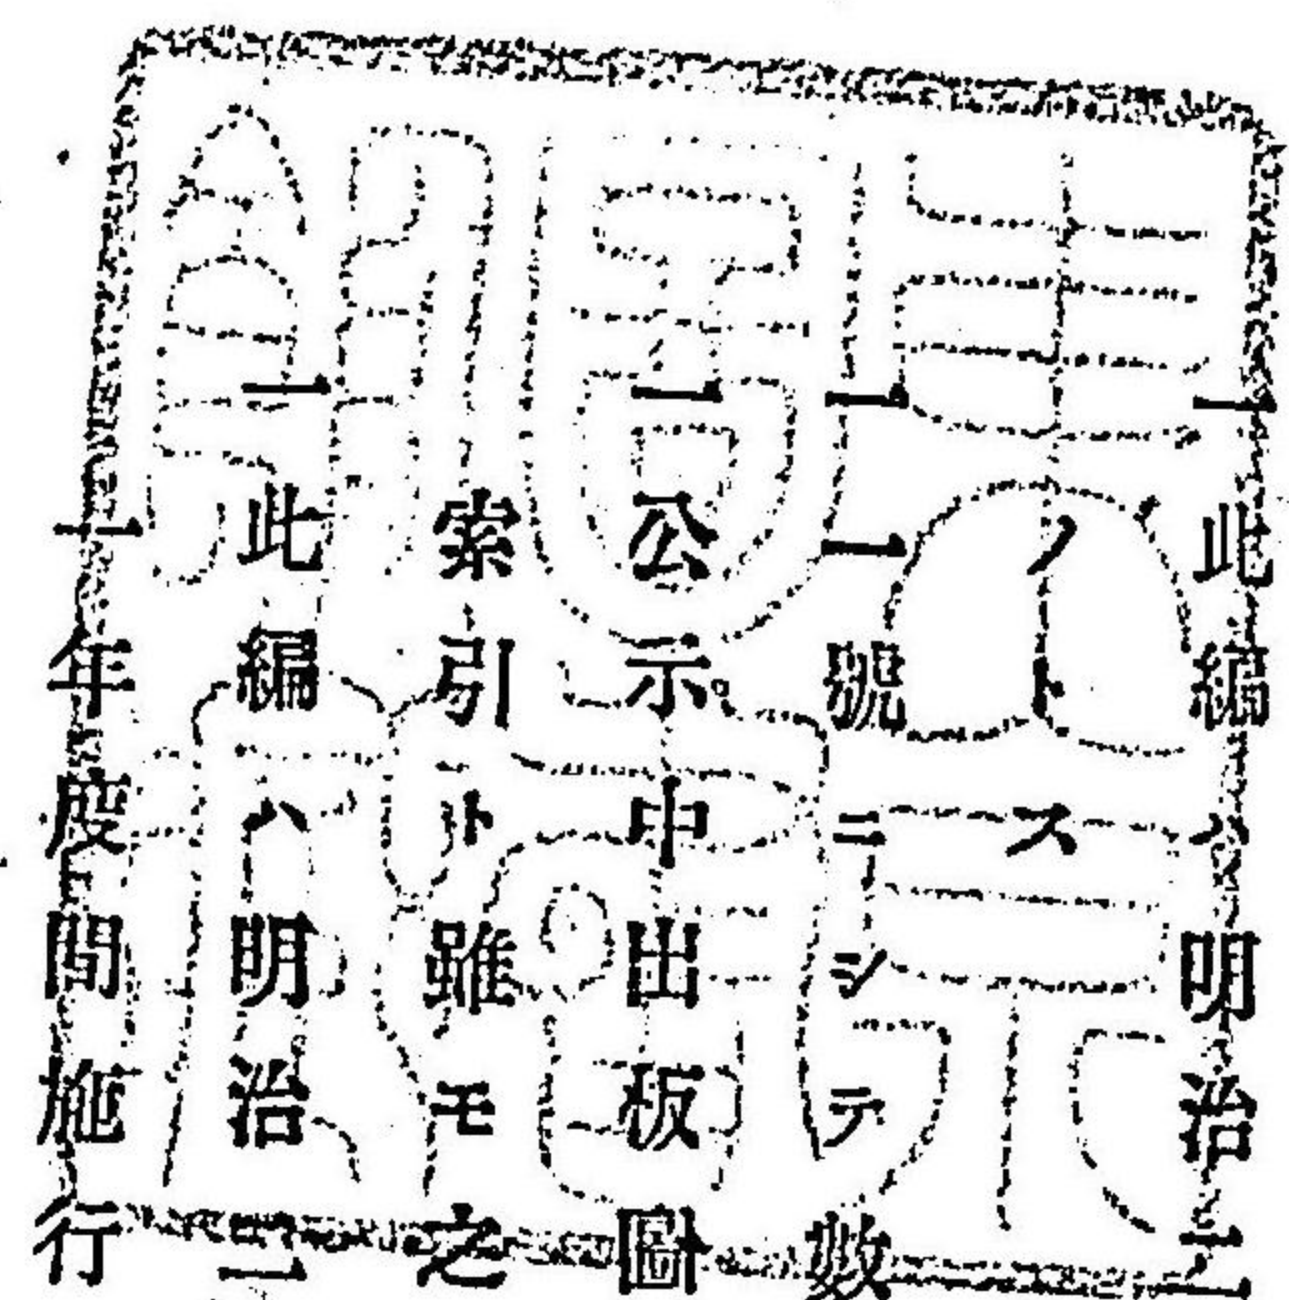 一此編ハ明治二
ノトス
一一號ニシテ數
一公示中出板圖
索引ト雖モ之
一此編ハ明治二
一年度間施行